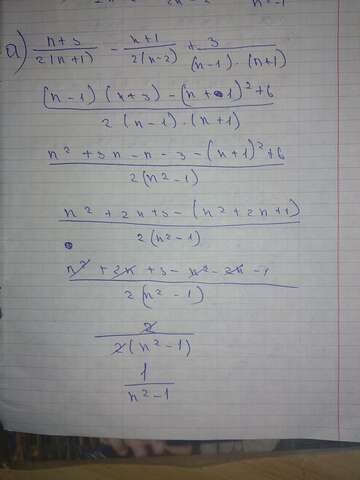 a) \frac{n+3}{2(n+1)} - \frac{n+1}{2(n-2)} + \frac{3}{(n-1)·(n+1)}
\frac{(n-1)(n+3)-(n+1)^2+6}{2(n-1)·(n+1)}
\frac{n^2+3n-n-3-(n+1)^2+6}{2(n^2-1)}
\frac{n^2+2n+3-(n^2+2n+1)}{2(n^2-1)}
\frac{n^2+2n+3-n^2-2n-1}{2(n^2-1)}
\frac{2}{2(n^2-1)}
\frac{1}{n^2-1}